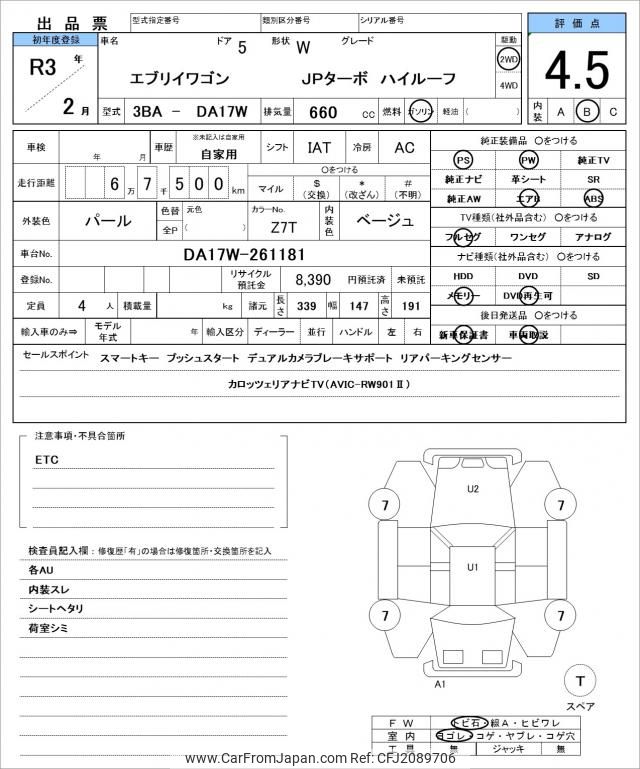 出品票 型式指定番号 類別区分番号 シリアル番号 評価点
初年度登録 車名 ドア 5 形状 W グレード 駆動
R3 年 エブリイワゴン JPターボ ハイルーフ 2WD 4.5
4WD
2 月 型式 3BA - DA17W 排気量 660 cc 燃料 ガソリン 軽油 ( ) 内装 A B C
車検 年 月 車歴 ※未記入は自家用 自家用 シフト IAT 冷房 AC
走行距離 6 万 7 千 5 0 0 km ○をつける
マイル $ (交換) * (改ざん) # (不明)
外装色 パール 色替 元色 全P ( ) カラーNo. Z7T 内装色 ベージュ
車台No. DA17W-261181
登録No. リサイクル預託金 8,390 円預託済 未預託
定員 4 人 積載量 kg 諸元 長さ 339 幅 147 高さ 191
輸入車のみ⇒ モデル年式 年 輸入区分 ディーラー 並行 ハンドル 左 右
純正装備品 ○をつける
PS PW 純正TV
純正ナビ 革シート SR
純正AW エアB ABS
TV種類(社外品含む) ○をつける
フルセグ ワンセグ アナログ
ナビ種類(社外品含む) ○をつける
HDD DVD SD
メモリー DVD再生可
後日発送品 ○をつける
新車保証書 車両取説
セールスポイント スマートキー プッシュスタート デュアルカメラブレーキサポート リアパーキングセンサー
カロッツェリアナビTV(AVIC-RW901Ⅱ)
注意事項・不具合箇所
ETC
検査員記入欄：修復歴「有」の場合は修復箇所・交換箇所を記入
各AU
内装スレ
シートヘタリ
荷室シミ
U2
7 7
U1
7 7
A1
T
スペア
FW トビ石・線A・ヒビワレ
室内 ヨゴレ・コゲ・ヤブレ・コゲ穴
工具 無 ジャッキ 無
www.CarFromJapan.com Ref No. CFJ2089706